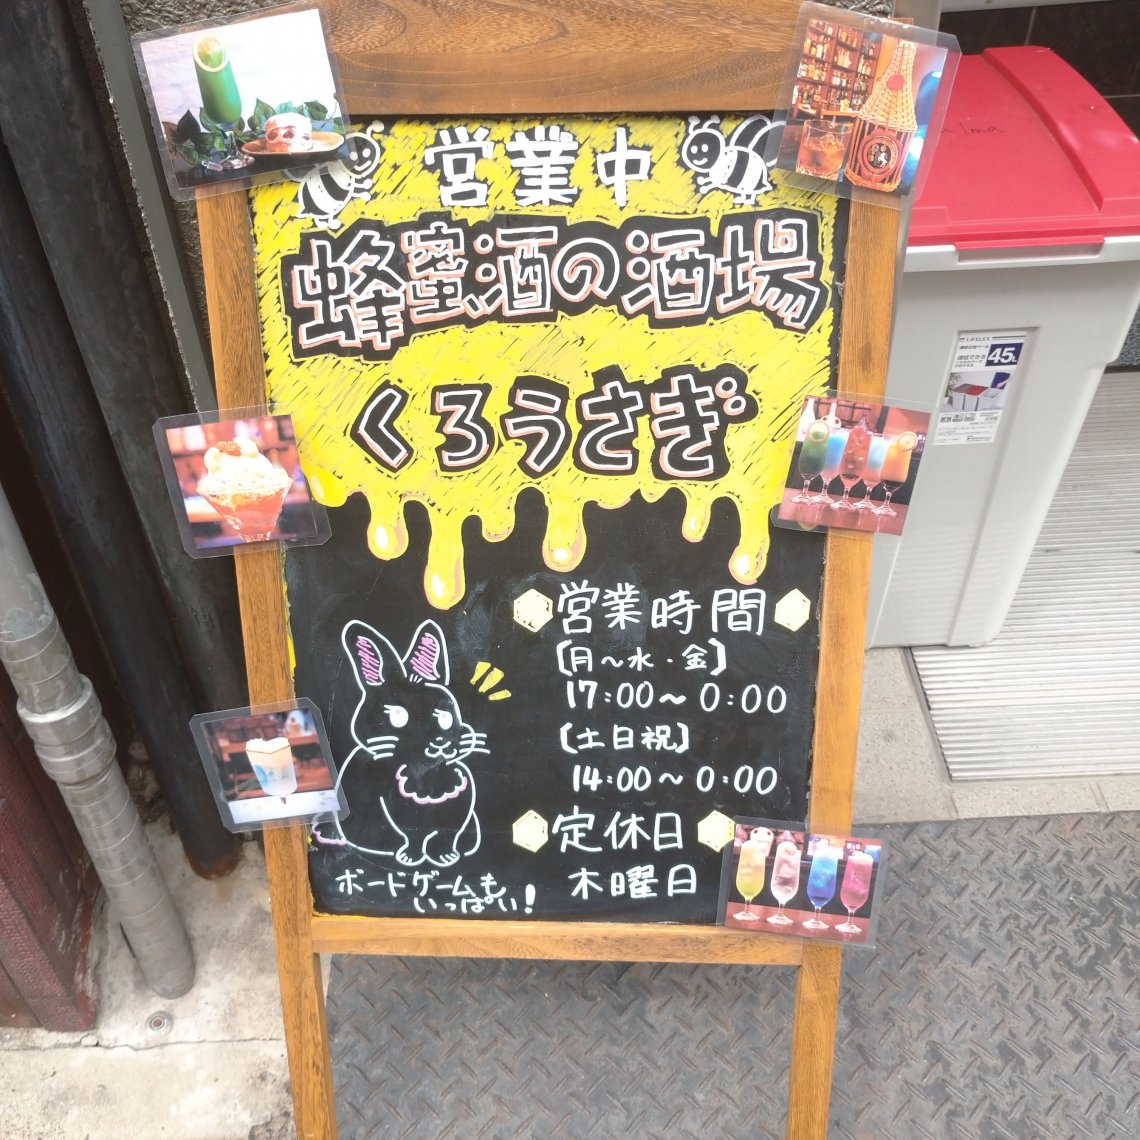 営業中
蜂蜜酒の酒場
くろうさぎ
営業時間
[月～水・金]
17:00～0:00
[土日祝]
14:00～0:00
定休日
木曜日
ボードゲームも
いっぱい!
LIFELEX
45L